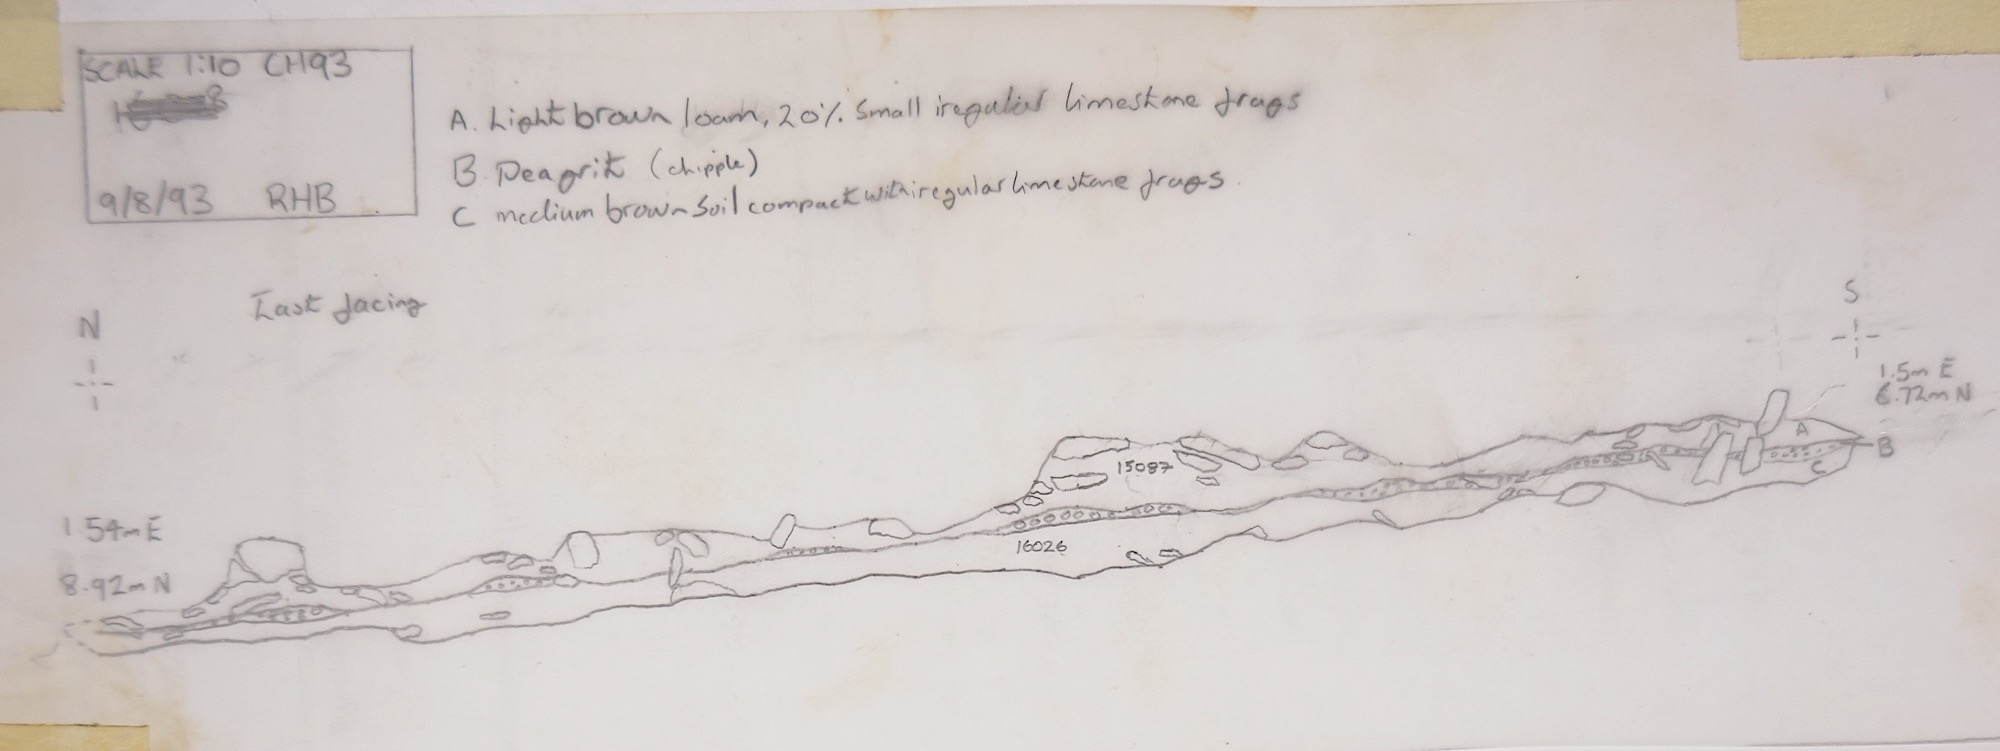 SCALE 1:10 CH93
9/8/93 RHB
A. Light brown loam, 20% Small iregular limestone frags
B. Peagrit (chipple)
C medium brown Soil compact with iregular limestone frags.
East facing
N
S
1.5m E
6.72m N
A
B
C
15087
16026
1.54m E
8.92m N